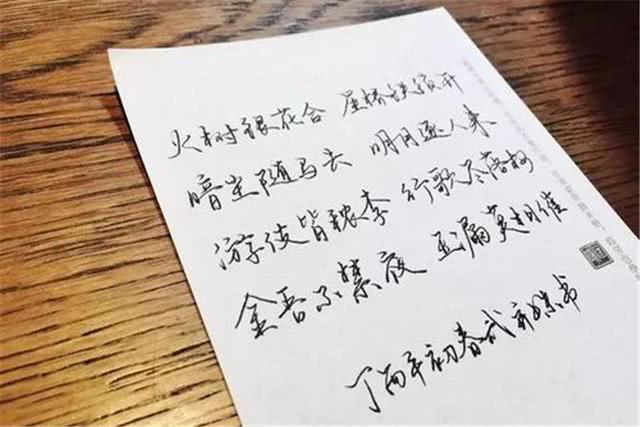 火树银花合 星桥铁锁开
暗尘随马去 明月逐人来
游伎皆秾李 行歌尽落梅
金吾不禁夜 玉漏莫相催
丁酉年初春试新 书